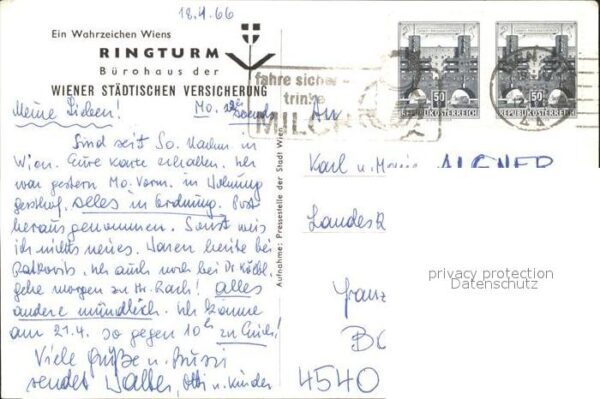 18.4.66
Ein Wahrzeichen Wiens
RINGTURM
Bürohaus der
WIENER STÄDTISCHEN VERSICHERUNG
fahre sicher
trinke
MILCH
50
REPUBLIK ÖSTERREICH
50
REPUBLIK ÖSTERREICH
Meine Lieben! Mo. Abend
An
Sind seit So. Nachm in
Wien. Eure Karte erhalten. Ich
war gestern Mo. Vorm. in Wohnung
Gersthof, alles in Ordnung. Post
herausgenommen. Sonst weis
ich nichts neues. Waren heute bei
Ratkovits. Ich auch noch bei Dr
gehe morgen zu Hr. Rach! alles
andere mündlich. Ich komme
am 21.4. so gegen 10h zu Euch!
Viele Grüße u. Bussi
sendet Walter, Otti u. Kinder
Aufnahme: Pressestelle der Stadt Wien
Karl u. Maria AIGNER
Landes
Franz
4540
privacy protection
Datenschutz